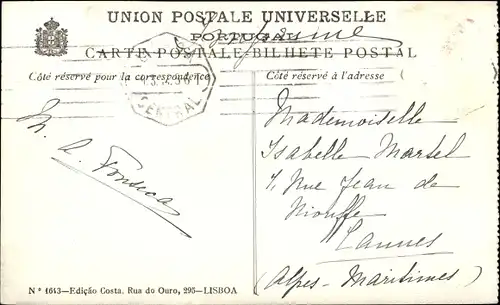 UNION POSTALE UNIVERSELLE
PORTUGAL
CARTE POSTALE-BILHETE POSTAL
Côté réservé pour la correspondence
Côté réservé à l'adresse
CENTRAL
M. A. Fonseca
Mademoiselle
Isabelle Martel
Rue Jean de
Riouffe
Cannes
(Alpes-Maritimes)
Nº 1643-Edição Costa. Rua do Ouro, 295-LISBOA